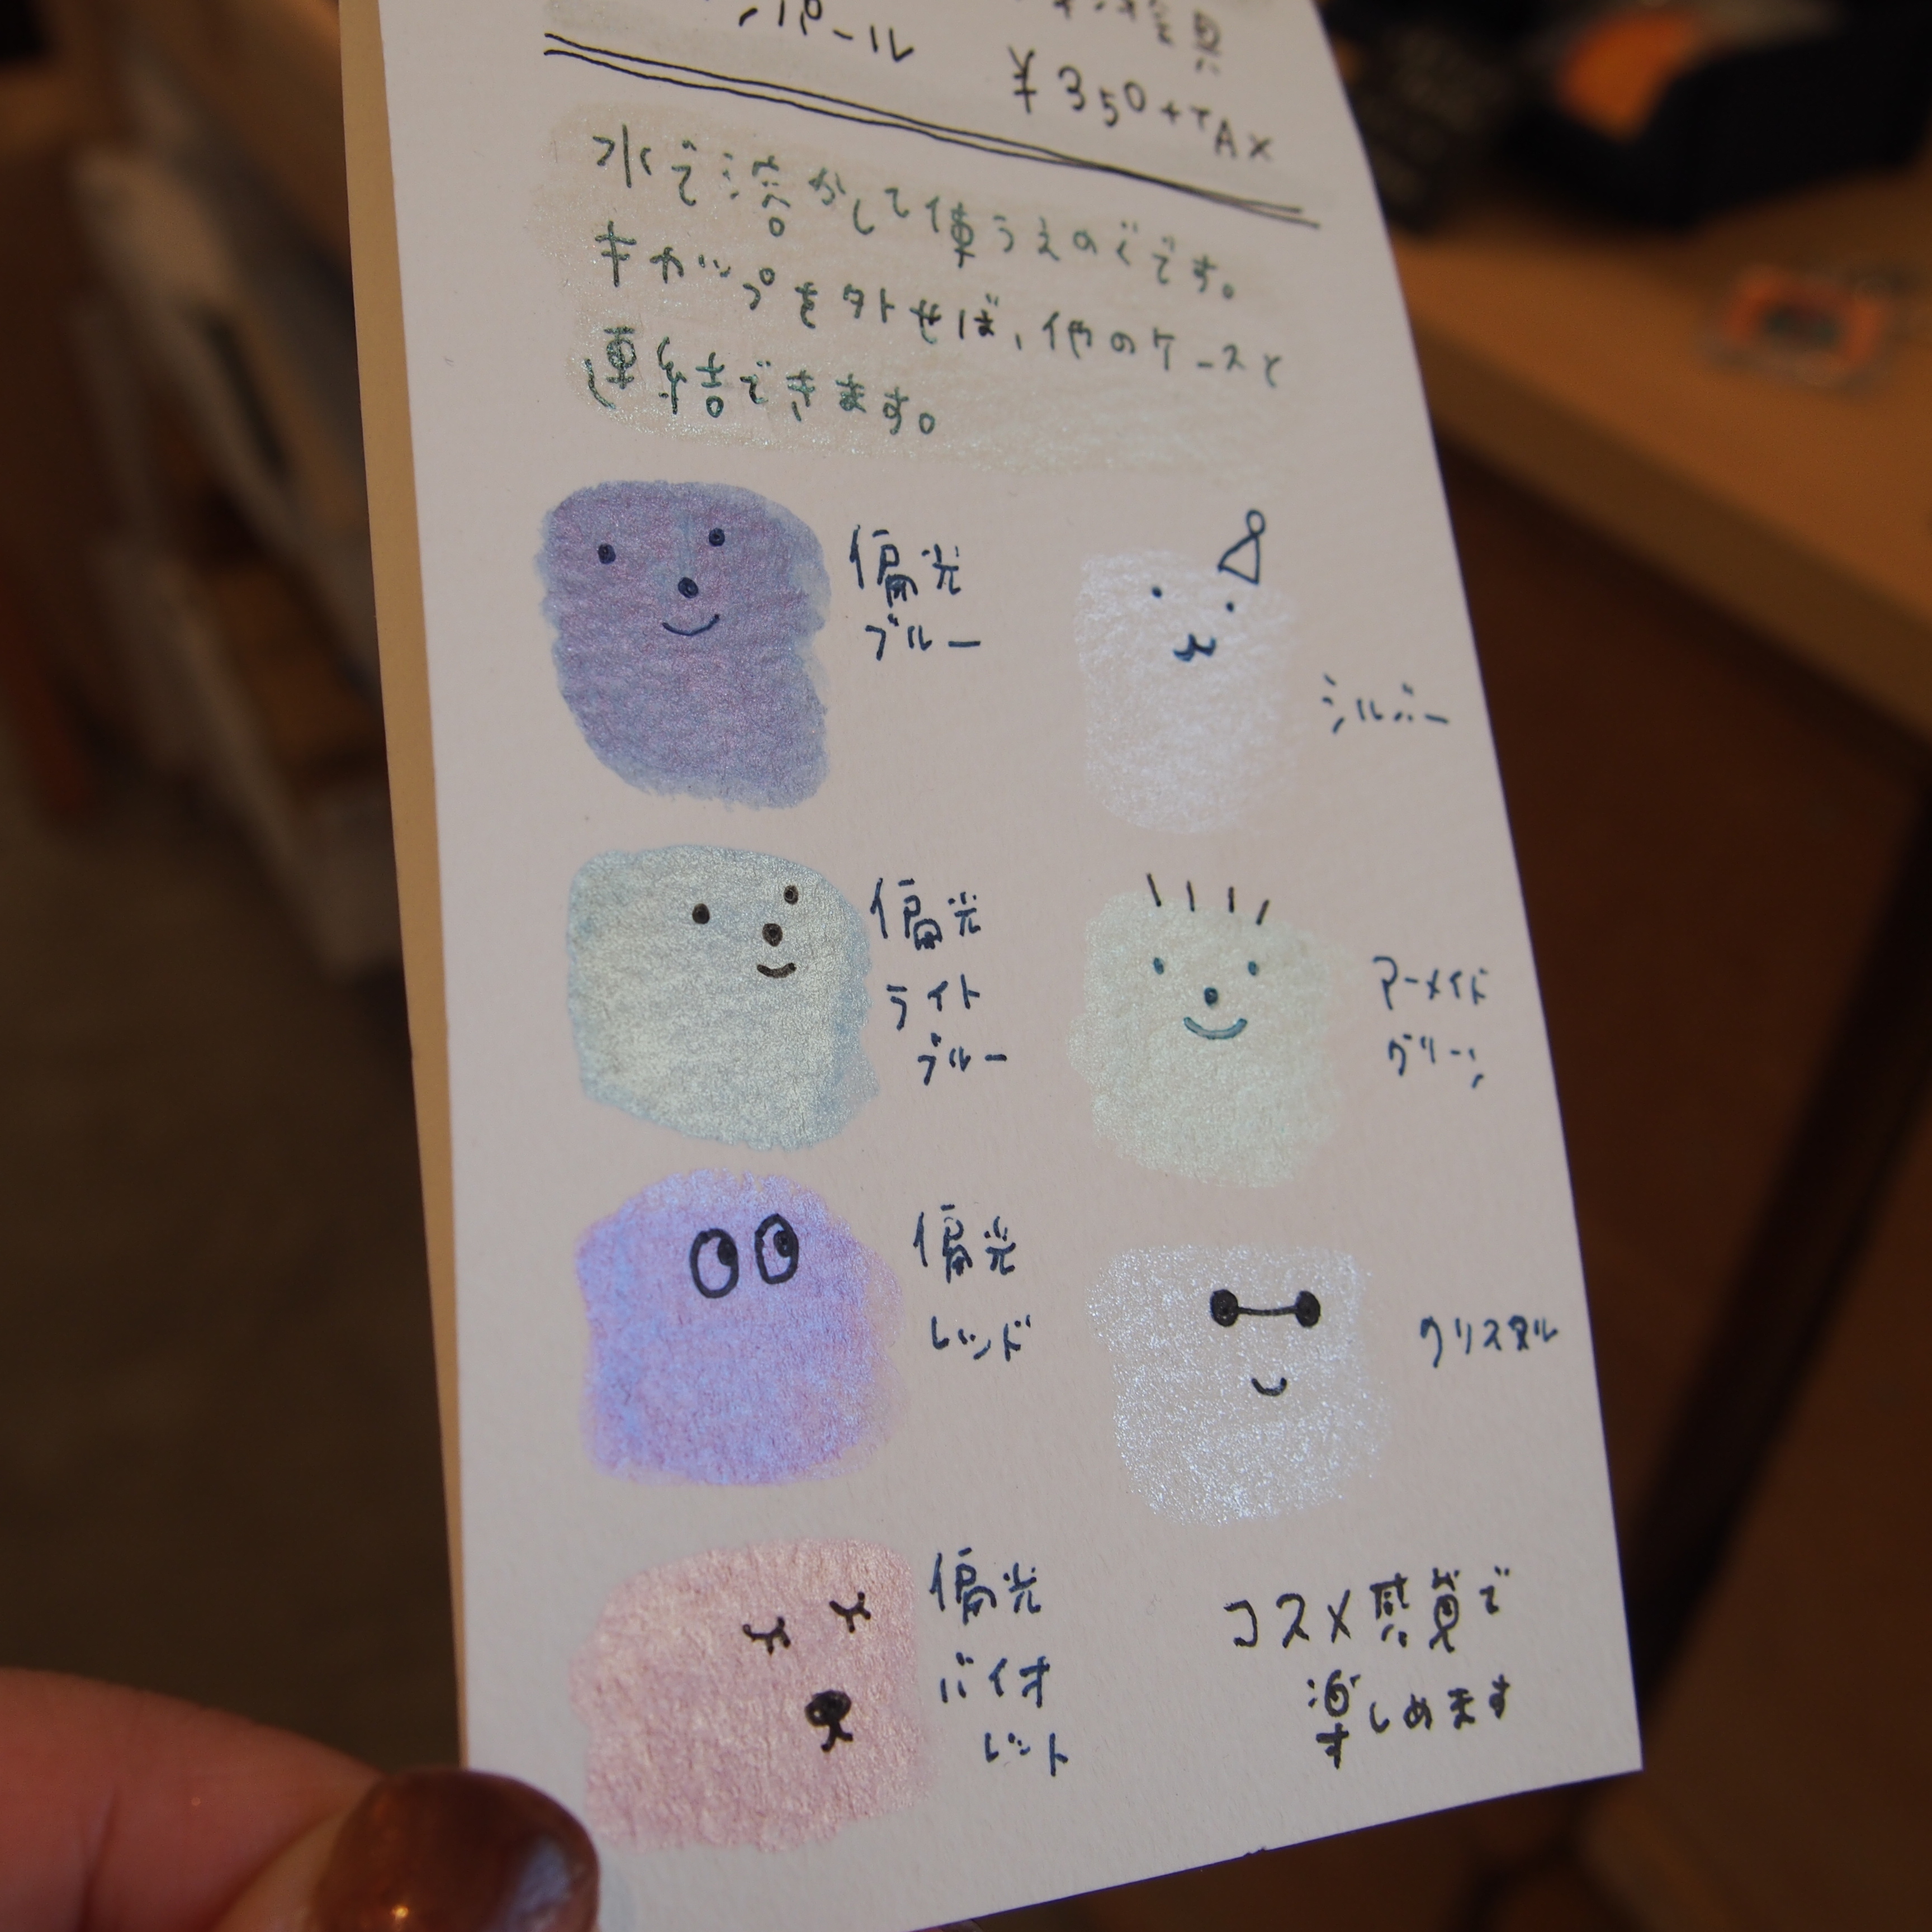 パール
¥350+TAX
水で溶かして使うえのぐです。
キャップを外せば、他のケースと
連結できます。
偏光
ブルー
シルバー
偏光
ライト
ブルー
アーメイド
グリーン
偏光
レッド
クリスタル
偏光
バイオ
レット
コスメ感覚で
楽しめます